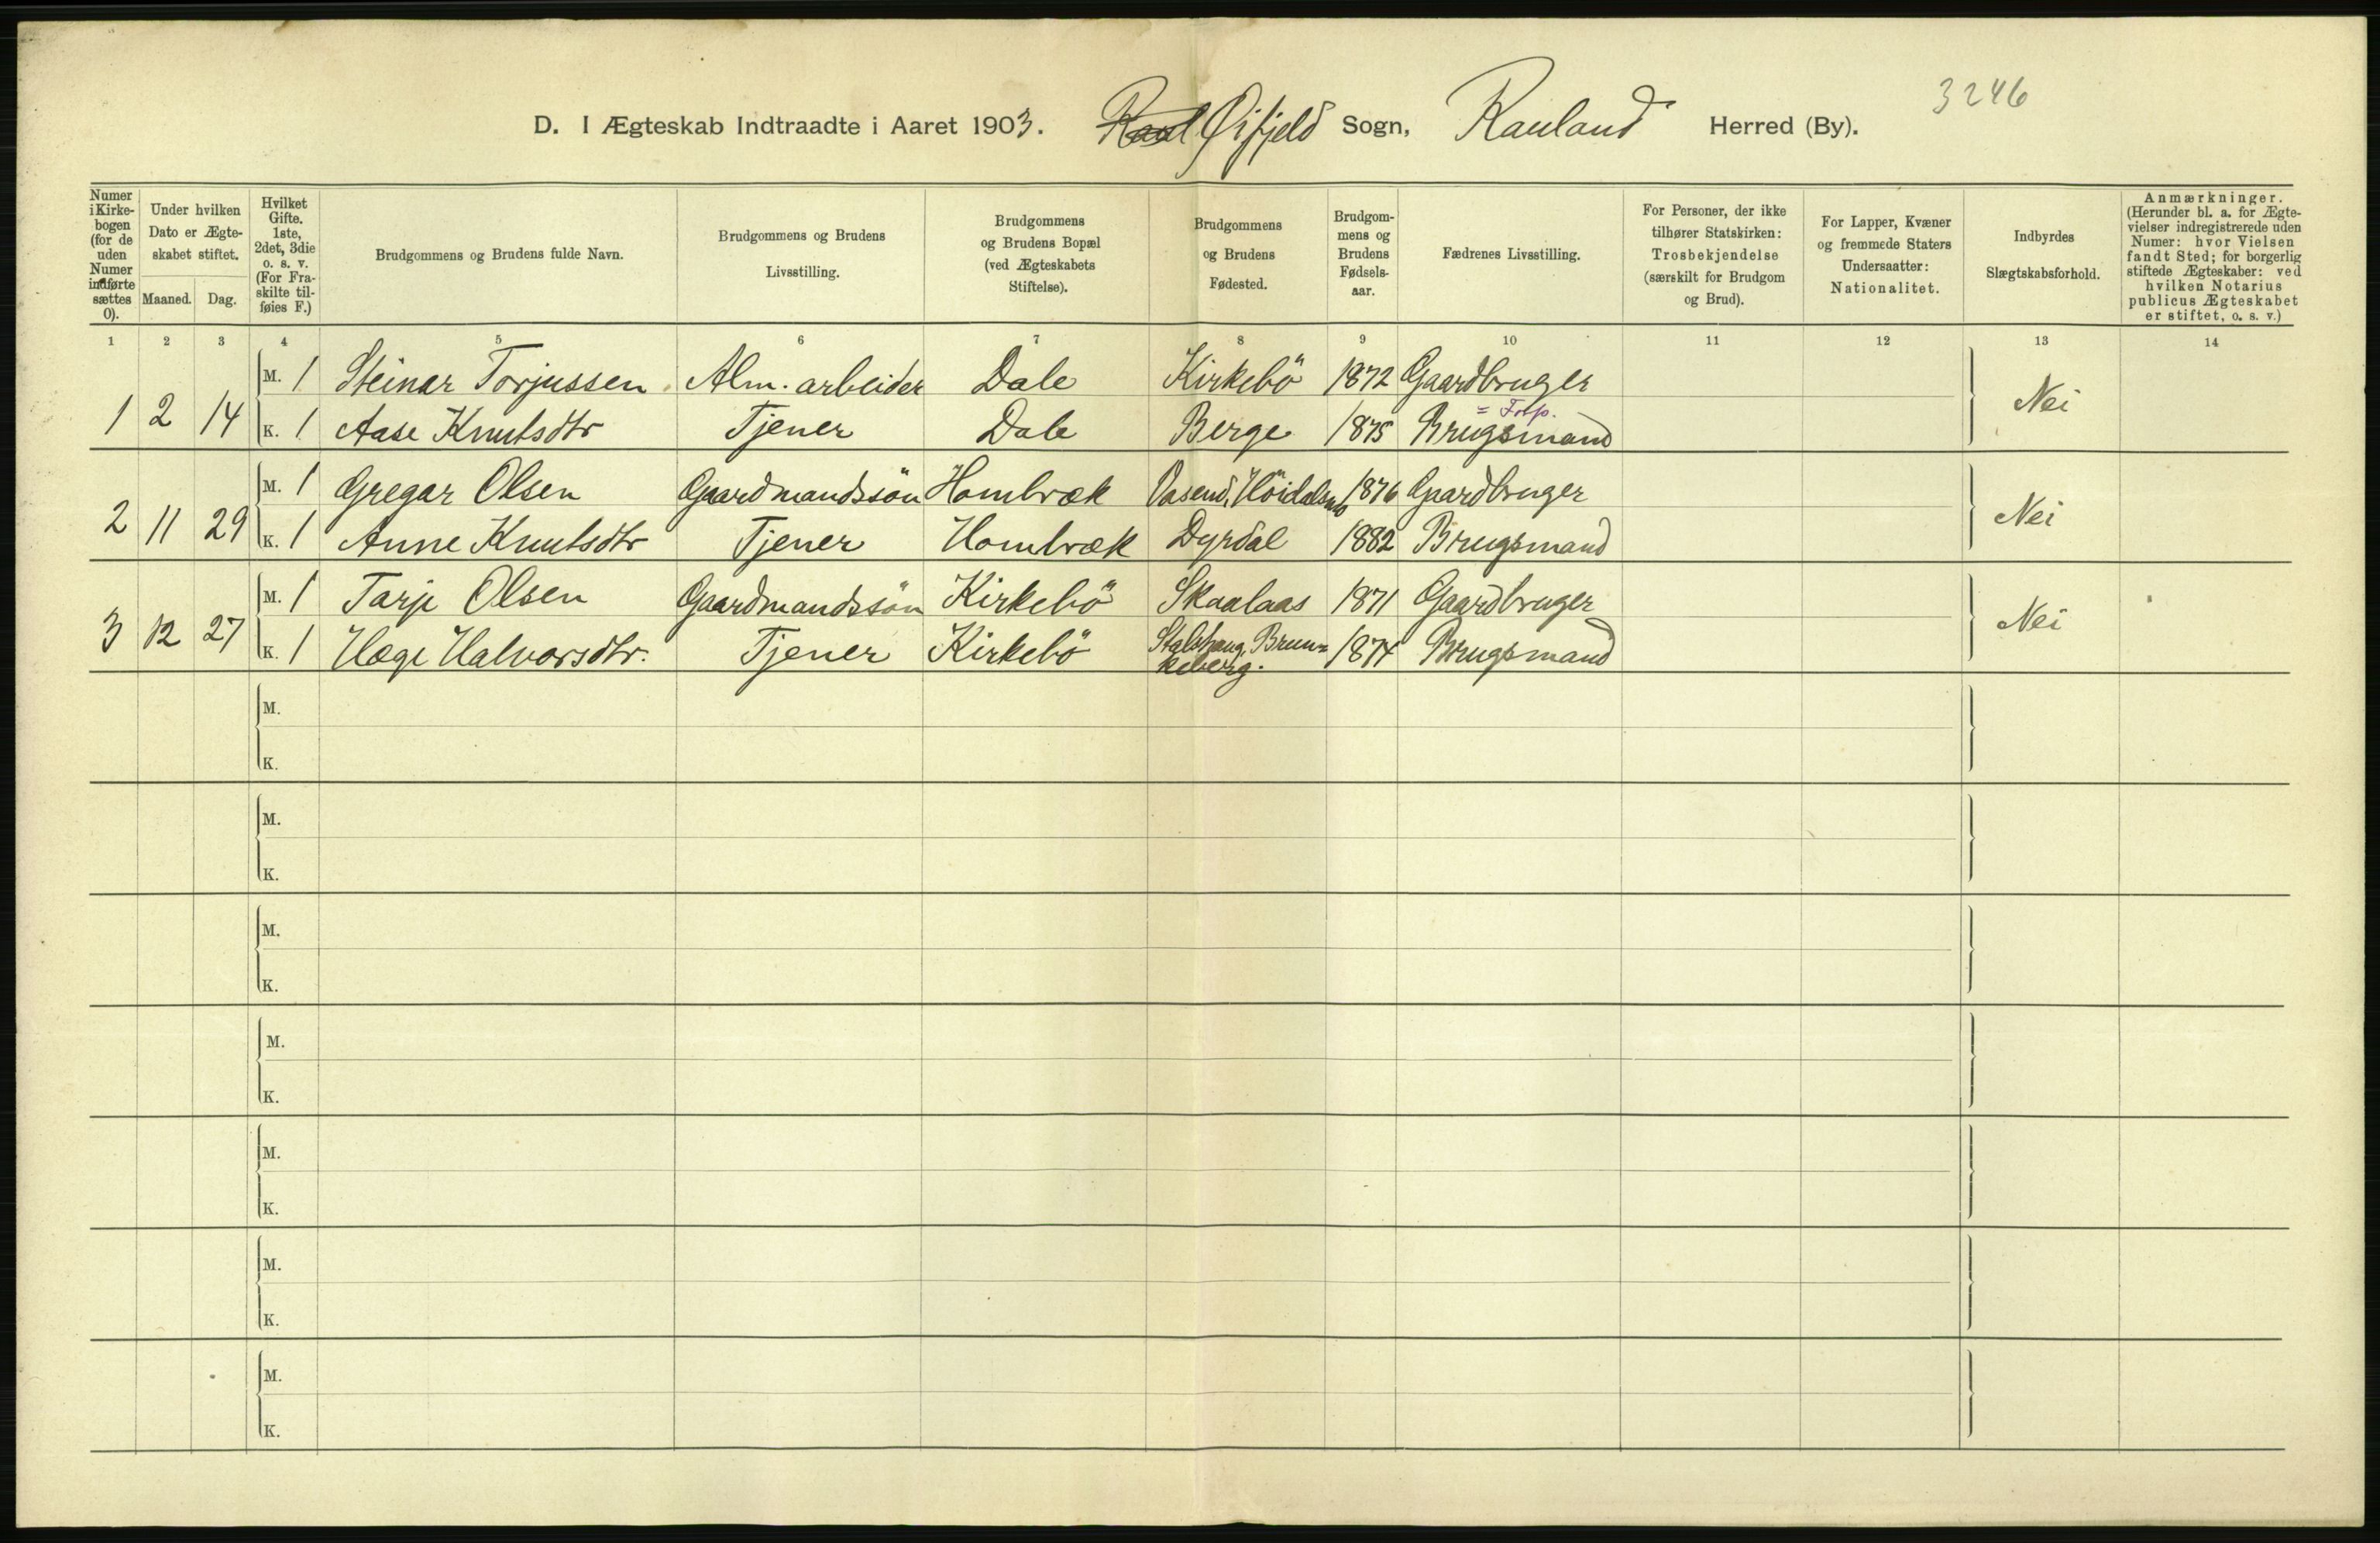 3246
D. I Ægteskab Indtraadte i Aaret 1903. Øifjeld Sogn, Rauland Herred (By).
Numer i Kirkebogen (for de uden Numer indførte sættes 0).
Under hvilken Dato er Ægteskabet stiftet.
Maaned. Dag.
Hvilket Gifte. 1ste, 2det, 3die o. s. v. (For Fraskilte tilføies F.)
Brudgommens og Brudens fulde Navn.
Brudgommens og Brudens Livsstilling.
Brudgommens og Brudens Bopæl (ved Ægteskabets Stiftelse).
Brudgommens og Brudens Fødested.
Brudgommens og Brudens Fødselsaar.
Fædrenes Livsstilling.
For Personer, der ikke tilhører Statskirken: Trosbekjendelse (særskilt for Brudgom og Brud).
For Lapper, Kvæner og fremmede Staters Undersaatter: Nationalitet.
Indbyrdes Slægtskabsforhold.
Anmærkninger. (Herunder bl. a. for Ægtevielser indregistrerede uden Numer: hvor Vielsen fandt Sted; for borgerlig stiftede Ægteskaber: ved hvilken Notarius publicus Ægteskabet er stiftet, o. s. v.)
1 2 3 4 5 6 7 8 9 10 11 12 13 14
M. 1 Steinar Torjussen Alm. arbeider Dale Kirkebö 1872 Gaardbruger
1 2 14 Nei
= Forp.
K. 1 Aase Knutsdtr Tjener Dale Berge 1875 Brugsmand
M. 1 Gregar Olsen Gaardmandssön Hombræk Vasend, Höidalsmo 1876 Gaardbruger
2 11 29 Nei
K. 1 Anne Knutsdtr Tjener Hombræk Dyrdal 1882 Brugsmand
M. 1 Tarje Olsen Gaardmandssön Kirkebö Skaalaas 1871 Gaardbruger
3 12 27 Nei
K. 1 Hæge Halvorsdtr. Tjener Kirkebö Brun= 1874 Brugsmand
keberg.
M.
K.
M.
K.
M.
K.
M.
K.
M.
K.
M.
K.
M.
K.